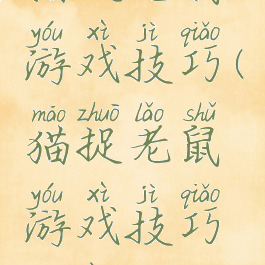 yóu xì jì qiǎo
游戏技巧(
māo zhuō lǎo shǔ
猫捉老鼠
yóu xì jì qiǎo
游戏技巧